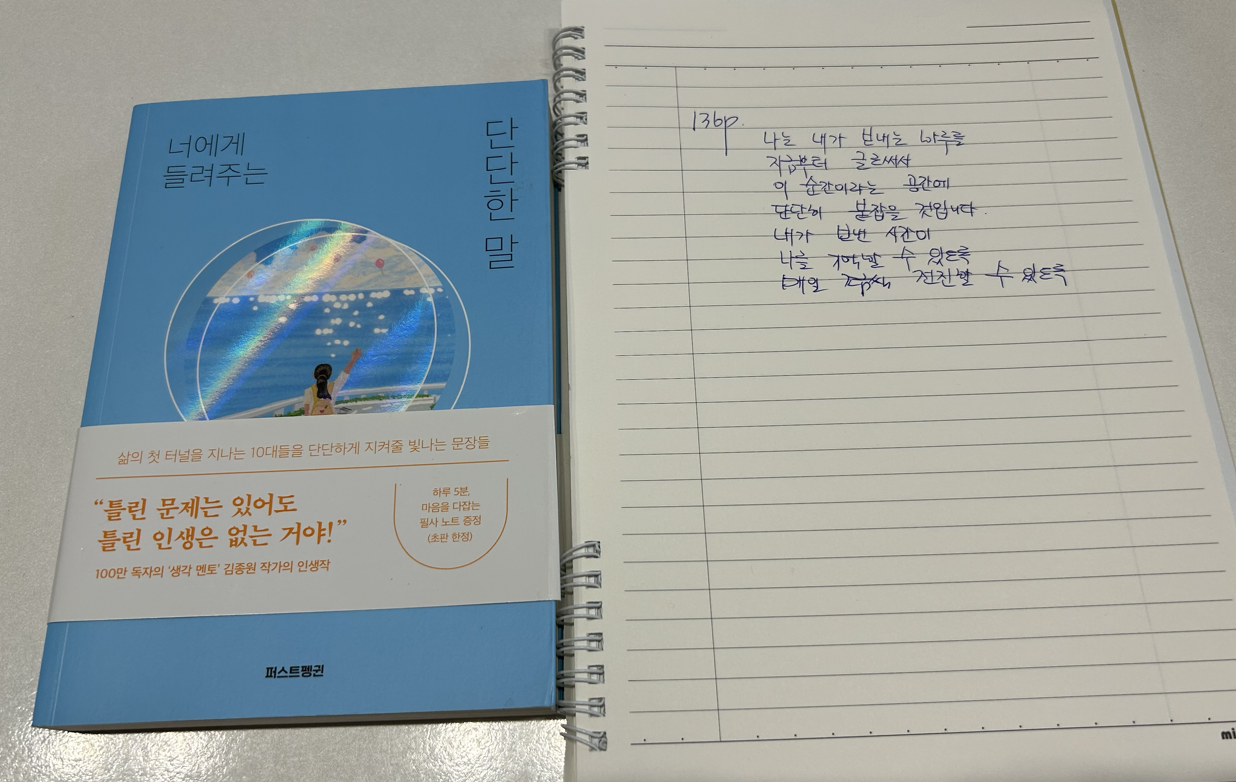 너에게
들려주는
단단한 말
삶의 첫 터널을 지나는 10대들을 단단하게 지켜줄 빛나는 문장들
“틀린 문제는 있어도
틀린 인생은 없는 거야!”
100만 독자의 '생각 멘토' 김종원 작가의 인생작
하루 5분,
마음을 다잡는
필사 노트 증정
(초판 한정)
퍼스트펭귄
136p.
나는 내가 보내는 하루를
지금부터 글로써서
이 순간이라는 공간에
단단히 붙잡을 것입니다.
내가 보낸 시간이
나를 기억할 수 있도록
매일 조금씩 전진할 수 있도록
mi